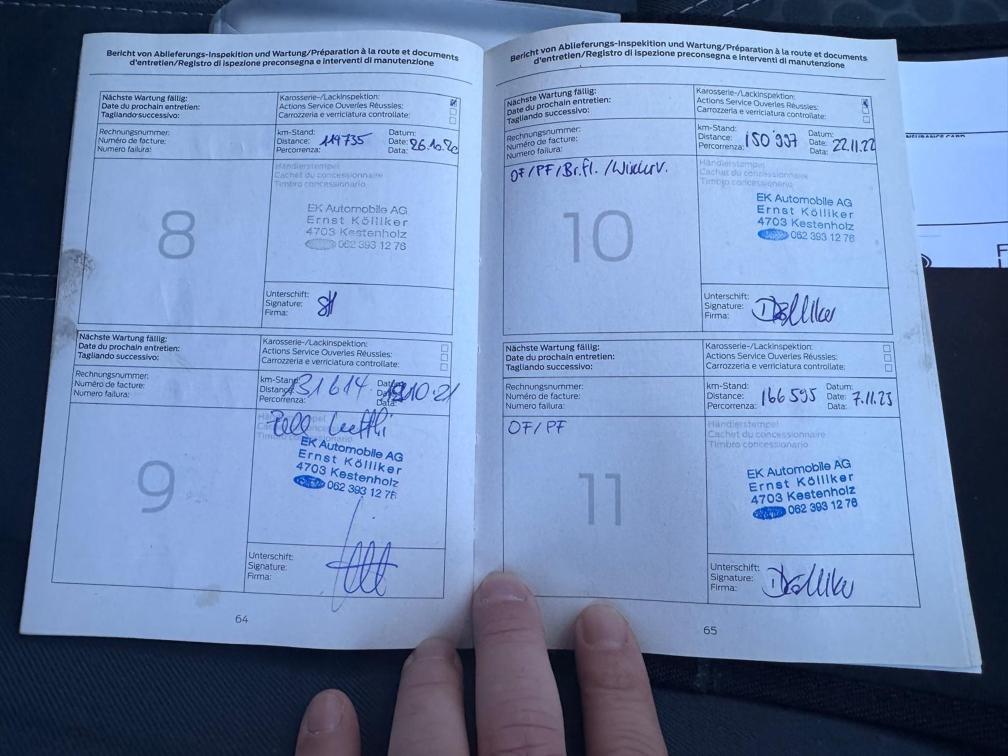 Bericht von Ablieferungs-Inspekition und Wartung/Préparation à la route et documents
d'entretien/Registro di ispezione preconsegna e interventi di manutenzione
Nächste Wartung fällig:
Date du prochain entretien:
Tagliando successivo:
Karosserie-/Lackinspektion:
Actions Service Ouverles Réussies:
Carrozzeria e verriciatura controllate:
Rechnungsnummer:
Numéro de facture:
Numero failura:
km-Stand: Datum:
Distance: 119735 Date: 26.10.20
Percorrenza: Data:
8
Händlerstempel
Cachet du concessionnaire
Timbro concessionario
EK Automobile AG
Ernst Kölliker
4703 Kestenholz
062 393 12 76
Unterschift:
Signature:
Firma:
Nächste Wartung fällig:
Date du prochain entretien:
Tagliando successivo:
Karosserie-/Lackinspektion:
Actions Service Ouverles Réussies:
Carrozzeria e verriciatura controllate:
Rechnungsnummer:
Numéro de facture:
Numero failura:
km-Stand:
Distance: 131614
Percorrenza: Data:
9
EK Automobile AG
Ernst Kölliker
4703 Kestenholz
062 393 12 76
Unterschift:
Signature:
Firma:
64
Bericht von Ablieferungs-Inspekition und Wartung/Préparation à la route et documents
d'entretien/Registro di ispezione preconsegna e interventi di manutenzione
Nächste Wartung fällig:
Date du prochain entretien:
Tagliando successivo:
Karosserie-/Lackinspektion:
Actions Service Ouverles Réussies:
Carrozzeria e verriciatura controllate:
Rechnungsnummer:
Numéro de facture:
Numero failura:
km-Stand: Datum:
Distance: 150'997 Date: 22.11.22
Percorrenza: Data:
OF/PF/Br.fl./WischerV.
10
Händlerstempel
Cachet du concessionnaire
Timbro concessionario
EK Automobile AG
Ernst Kölliker
4703 Kestenholz
062 393 12 76
Unterschift:
Signature:
Firma:
Nächste Wartung fällig:
Date du prochain entretien:
Tagliando successivo:
Karosserie-/Lackinspektion:
Actions Service Ouverles Réussies:
Carrozzeria e verriciatura controllate:
Rechnungsnummer:
Numéro de facture:
Numero failura:
km-Stand: Datum:
Distance: 166595 Date: 7.11.23
Percorrenza: Data:
OF/PF
11
Händlerstempel
Cachet du concessionnaire
Timbro concessionario
EK Automobile AG
Ernst Kölliker
4703 Kestenholz
062 393 12 76
Unterschift:
Signature:
Firma:
65